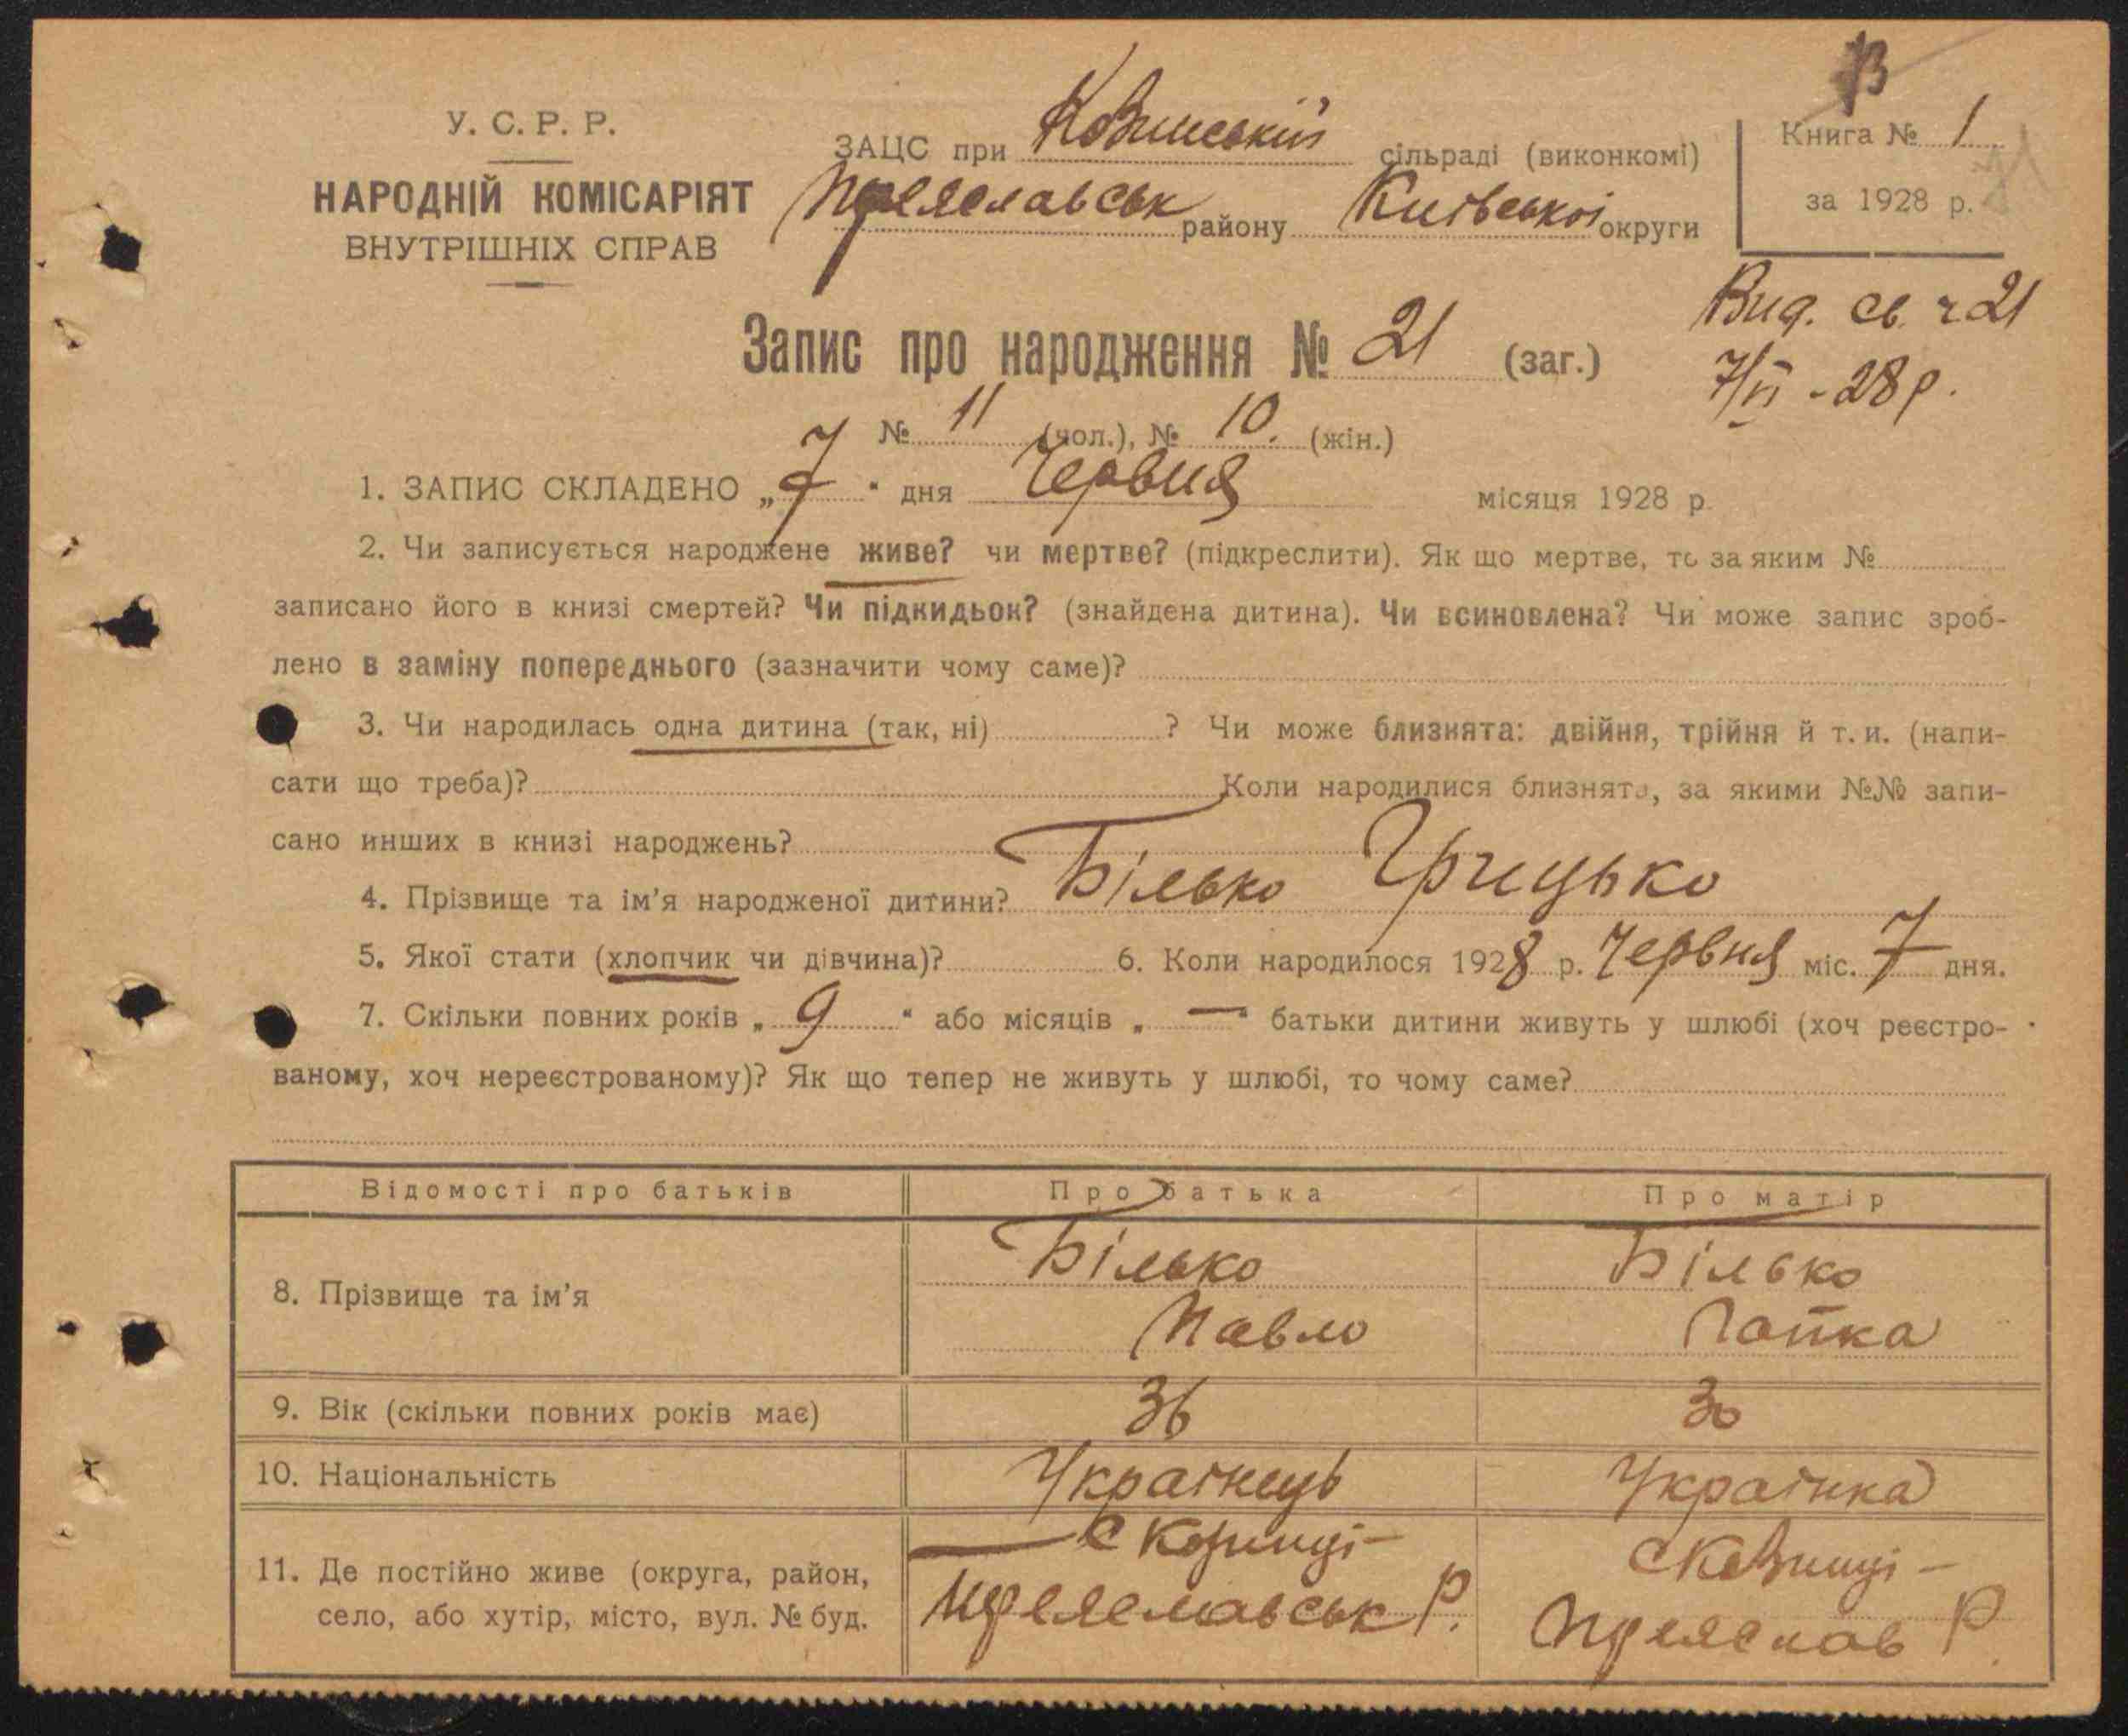 У. С. Р. Р.
НАРОДНІЙ КОМІСАРІЯТ
ВНУТРІШНІХ СПРАВ
ЗАЦС при Ковинській сільраді (виконкомі)
Переяславськ району Київської округи
Книга № 1
за 1928 р.
Вид. св. ч 21
7/VI - 28 р.
Запис про народження № 21 (заг.)
№ 11 (чол.), № 10. (жін.)
1. ЗАПИС СКЛАДЕНО „7“ дня Червня місяця 1928 р.
2. Чи записується народжене живе? чи мертве? (підкреслити). Як що мертве, то за яким №
записано його в книзі смертей? Чи підкидьок? (знайдена дитина). Чи всиновлена? Чи може запис зроб-
лено в заміну попереднього (зазначити чому саме)?
3. Чи народилась одна дитина (так, ні) ? Чи може близнята: двійня, трійня й т. и. (напи-
сати що треба)? Коли народилися близнята, за якими №№ запи-
сано инших в книзі народжень?
4. Прізвище та ім'я народженої дитини? Білько Грицько
5. Якої стати (хлопчик чи дівчина)? 6. Коли народилося 1928 р. Червня міс. 7 дня.
7. Скільки повних років „ 9 “ або місяців „ — “ батьки дитини живуть у шлюбі (хоч реєстро-
ваному, хоч нереєстрованому)? Як що тепер не живуть у шлюбі, то чому саме?
Відомості про батьків Про батька Про матір
8. Прізвище та ім'я Білько Павло Білько
9. Вік (скільки повних років має) 36 30
10. Національність Українець Українка
11. Де постійно живе (округа, район,
село, або хутір, місто, вул. № буд.